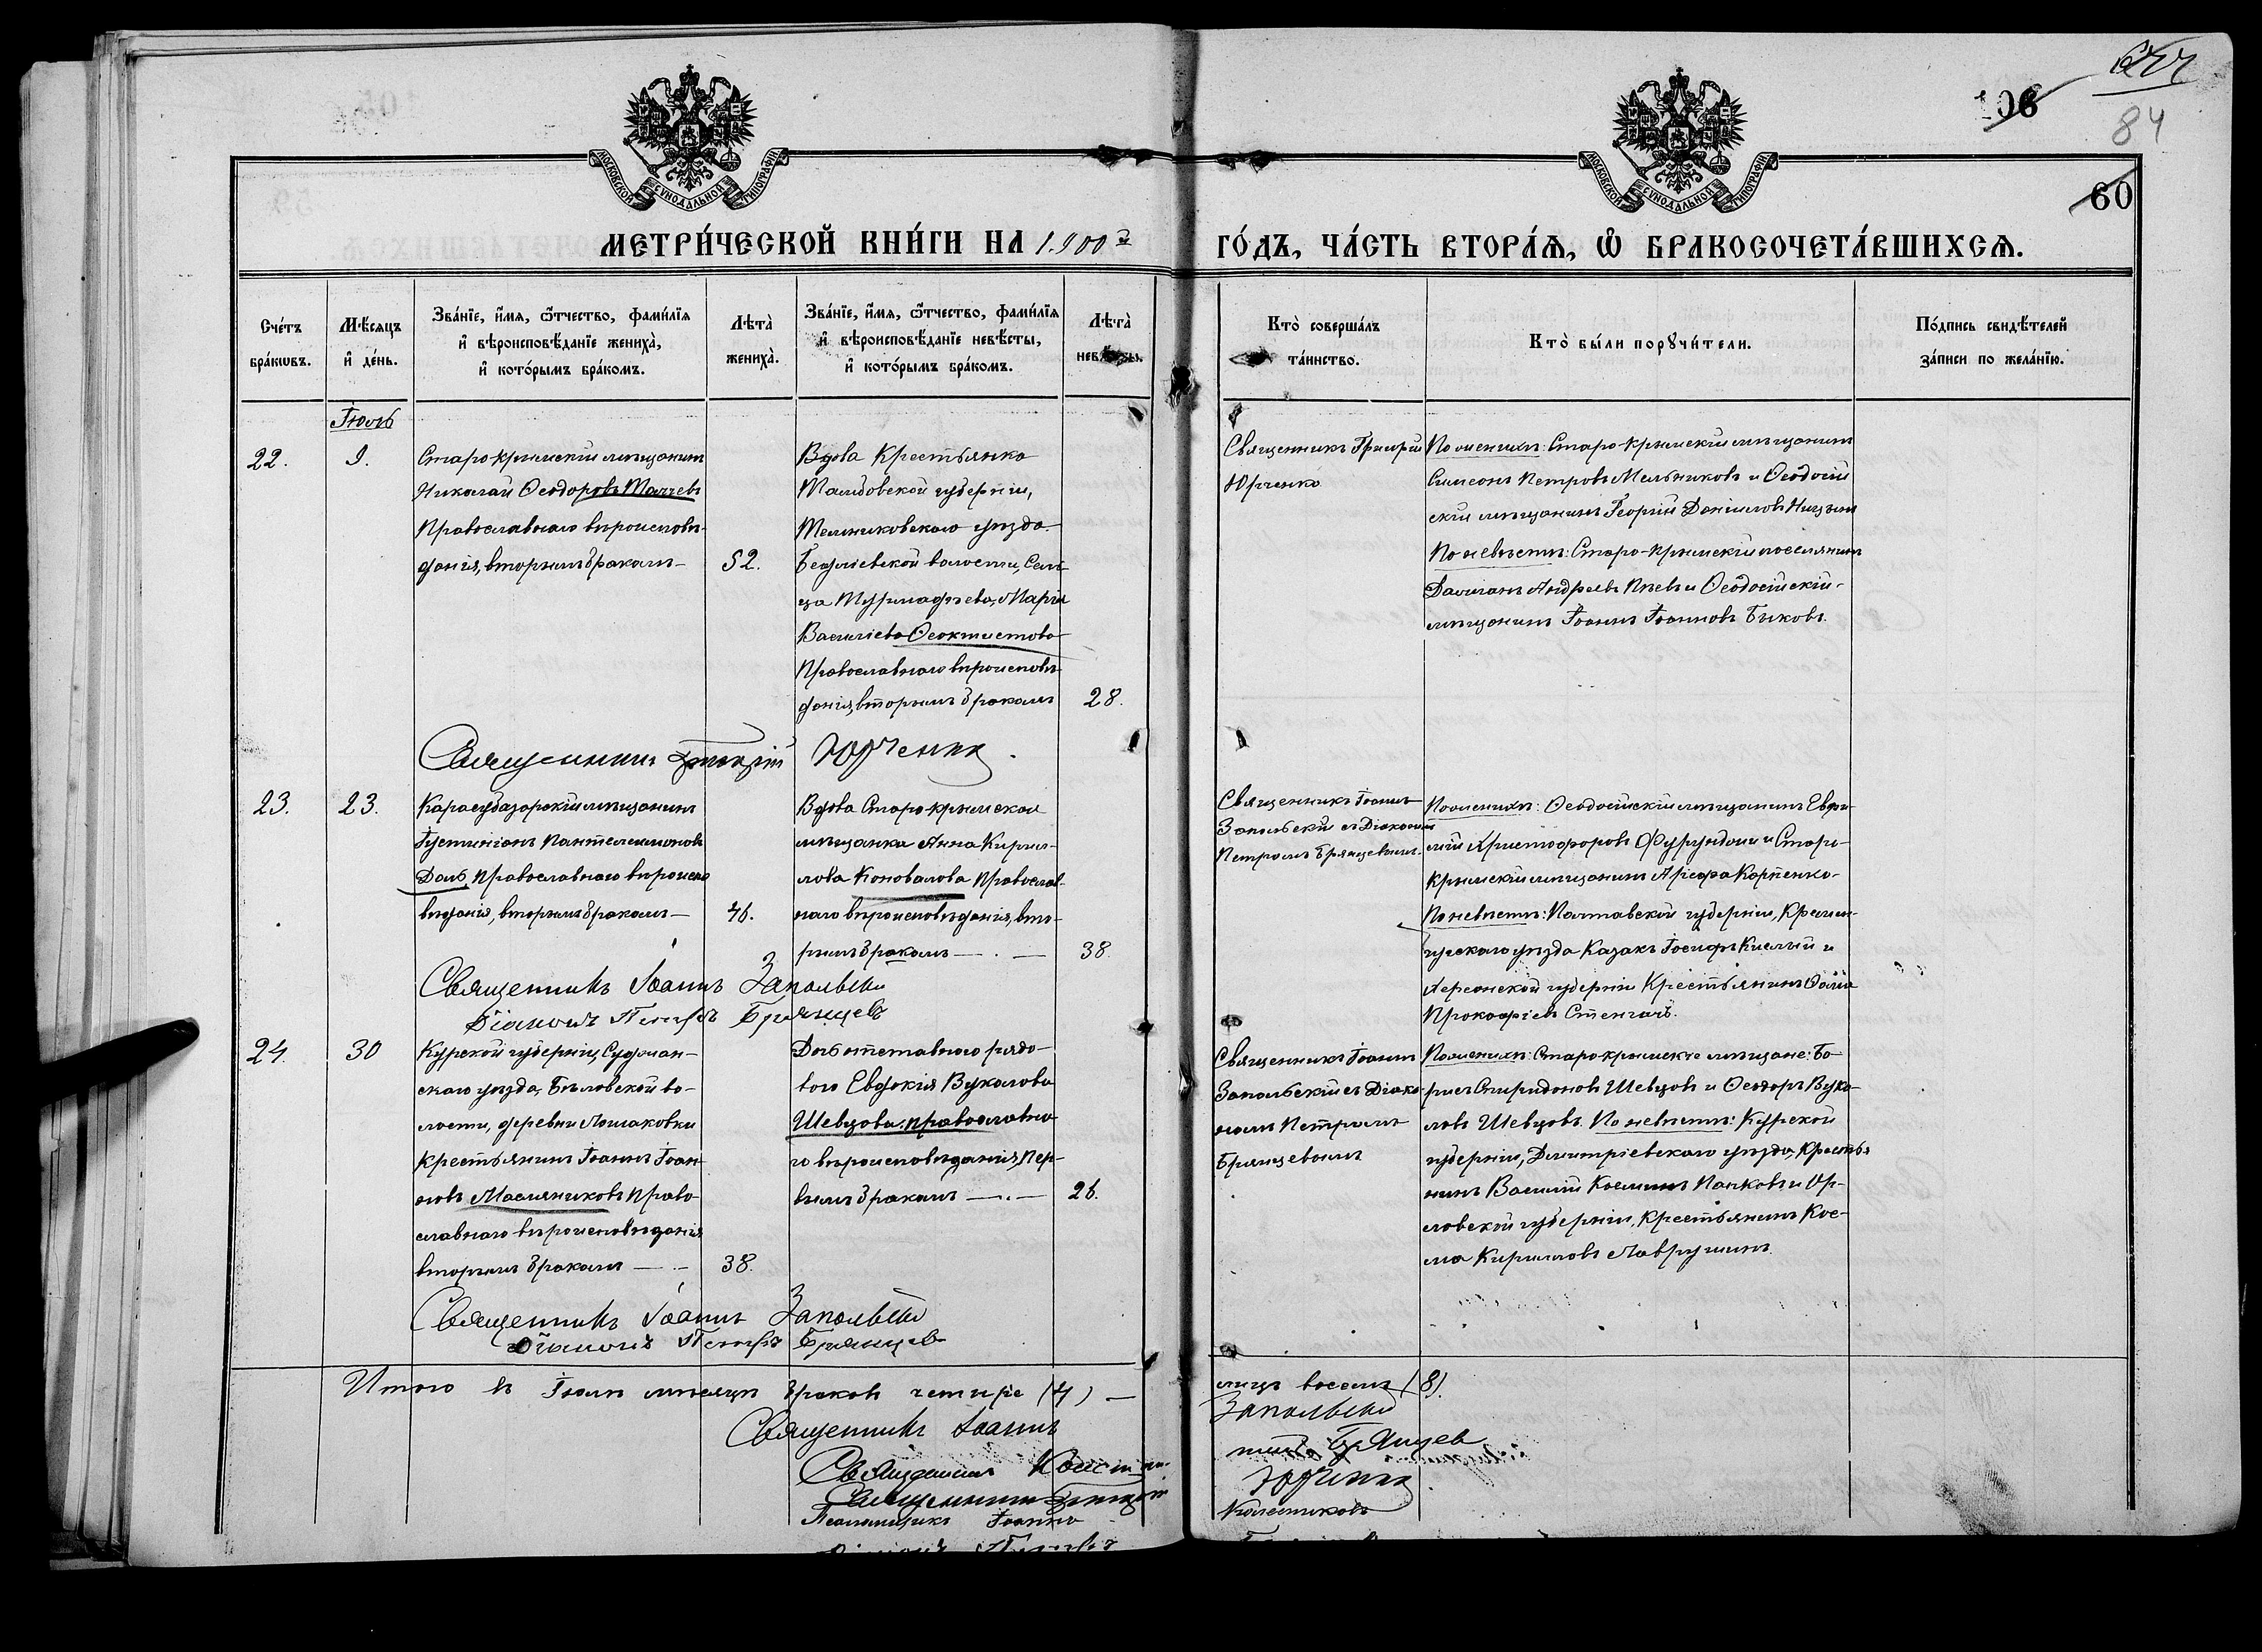 106
84
60
МОСКОВСКОЙ СѴНОДАЛЬНОЙ ТИПОГРАФІИ
МОСКОВСКОЙ СѴНОДАЛЬНОЙ ТИПОГРАФІИ
МЕТРИ́ЧЕСКОЙ КНИ́ГИ НА 1900й
ГО́ДЪ, ЧА́СТЬ ВТОРА́Ѧ, Ѽ БРАКОСОЧЕТА́ВШИХСѦ.
Сче́тъ
бра́кѡвъ.
Мѣ́сяцъ
и҆ де́нь.
Зва́нїе, и҆́мѧ, ѻ҆́тчество, фами́лїѧ
и҆ вѣроисповѣ́данїе жениха̀,
и҆ кото́рымъ бра́комъ.
Лѣта̀
жениха̀.
Зва́нїе, и҆́мѧ, ѻ҆́тчество, фами́лїѧ
и҆ вѣроисповѣ́данїе невѣ́сты,
и҆ кото́рымъ бра́комъ.
Лѣта̀
невѣ́сты.
Кто̀ соверша́лъ
та́инство.
Кто̀ бы́ли порꙋчи́тели.
По́дпись свидѣ́телей
за́писи по жела́нїю.
Іюль
22.
9.
Старо-крымскій мѣщанинъ
Николай Ѳеодоровъ Тачевъ
Православнаго вѣроисповѣ-
данія, вторымъ бракомъ —
52.
Вдова Крестьянка
Тамбовской губерніи,
Темниковскаго уѣзда
волости, Сель-
ца Марія
Василіева Ѳеоктистова
Православнаго вѣроисповѣ-
данія, вторымъ бракомъ
28.
Священникъ Григорій
Юрченко
По женихѣ: Старо-крымскій мѣщанинъ
Симеонъ Петровъ Мельниковъ и Ѳеодосій-
скій мѣщанинъ Георгій Даніиловъ
По невѣстѣ: Старо-крымскій поселянинъ
Андреевъ и Ѳеодосійскій
мѣщанинъ Іоаннъ Іоанновъ Быковъ.
Священникъ Григорій Юрченко.
23.
23.
Карасубазарскій мѣщанинъ
Іустиніанъ Пантелеимоновъ
Даль, Православнаго вѣроиспо-
вѣданія, вторымъ бракомъ —
46.
Вдова Старо-крымская
мѣщанка Анна Кирил-
лова Коновалова Православ-
наго вѣроисповѣданія, вто-
рымъ бракомъ —
38.
Священникъ Іоаннъ
Запольскій съ Діакономъ
Петромъ Брянцевымъ.
По женихѣ: Ѳеодосійскій мѣщанинъ Евфи-
мій Христофоровъ Фурунджи и Старо-
крымскій мѣщанинъ Арефа Карпенко.
По невѣстѣ: Полтавской губерніи, Кремен-
чугскаго уѣзда Казакъ Іосифъ Кислый и
Херсонской губерніи Крестьянинъ Ѳома
Прокофіевъ Стенгачъ.
Священникъ Іоаннъ Запольскій
Діаконъ Петръ Брянцевъ
24.
30
Курской губерніи, Суджан-
скаго уѣзда, Бѣловской во-
лости, деревни Ломаковки
Крестьянинъ Іоаннъ Іоан-
новъ Масленниковъ Право-
славнаго вѣроисповѣданія
вторымъ бракомъ —
38.
Дочь отставного рядо-
вого Евдокія Вуколова
Шевцова, православна-
го вѣроисповѣданія, пер-
вымъ бракомъ —
26.
Священникъ Іоаннъ
Запольскій съ Діако-
номъ Петромъ
Брянцевымъ
По женихѣ: Старо-крымскіе мѣщане: Бо-
рисъ Спиридоновъ Шевцовъ и Ѳеодоръ Вуко-
ловъ Шевцовъ. По невѣстѣ: Курской
губерніи, Дмитріевскаго уѣзда, Кресть-
нинъ Василій Косминъ Панковъ и Ор-
ловской губерніи, Крестьянинъ Кос-
ма Кирилловъ Лаврушинъ.
Священникъ Іоаннъ Запольскій
Діаконъ Петръ Брянцевъ
Итого въ Іюлѣ мѣсяцѣ браковъ четыре (4) —
лицъ восемь (8).
Священникъ Іоаннъ Запольскій
Священникъ Констан- Брянцев
Священникъ Григорій Юрченко
Псаломщикъ Іоаннъ Колесниковъ
Діаконъ Петръ